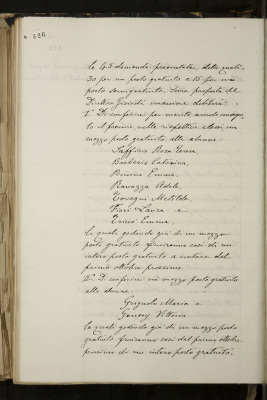 126
le 45 domande presentate, delle quali
30 per un posto gratuito e 15 per un
posto semigratuito. Sulla proposta del
Direttore unanime delibera:
1° Di conferire per merito avendo
to il premio nelle rispettive classi un
mezzo posto gratuito alle alunne:
Rosa Teresa,
Barberis Caterina,
Emma,
Ravazza Adele,
Matilde,
Fiori Laura e
Emma,
le quali godendo già di un mezzo
posto gratuito fruiranno così di un
intero posto gratuito a contare dal
primo ottobre prossimo.
2° Di conferire un mezzo posto gratuito
alle alunne
Grignolo Maria e
Vittoria
le quali godendo già di un mezzo posto
gratuito fruiranno così dal primo ottobre
prossimo di un intero posto gratuito.